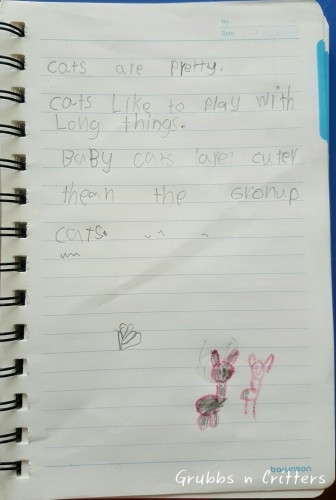 No.
Date
cats are pretty.
cats Like to play with
Long things.
BaBy cats are cuter
thean the Gronup
cats.
barunson
Grubbs n Critters